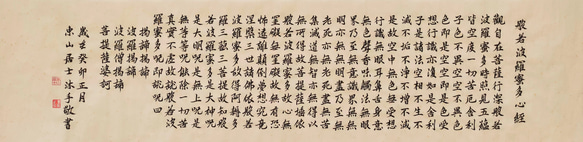 般若波羅蜜多心經
觀自在菩薩行深般若
波羅蜜多時照見五蘊
皆空度一切苦厄舍利
子色不異空空不異色
色即是空空即是色受
想行識亦復如是舍利
子是諸法空相不生不
滅不垢不淨不增不減
是故空中無色無受想
行識無眼耳鼻舌身意
無色聲香味觸法無眼
界乃至無意識界無無
明亦無無明盡乃至無
老死亦無老死盡無苦
集滅道無智亦無得以
無所得故菩提薩埵依
般若波羅蜜多故心無
罣礙無罣礙故無有恐
怖遠離顛倒夢想究竟
涅槃三世諸佛依般若
波羅蜜多故得阿耨多
羅三藐三菩提故知般
若波羅蜜多是大神咒
是大明咒是無上咒是
無等等咒能除一切苦
真實不虛故說般若波
羅蜜多咒即說咒曰
揭諦揭諦
波羅揭諦
波羅僧揭諦
菩提薩婆訶
歲在癸卯正月
山居士沐手敬書